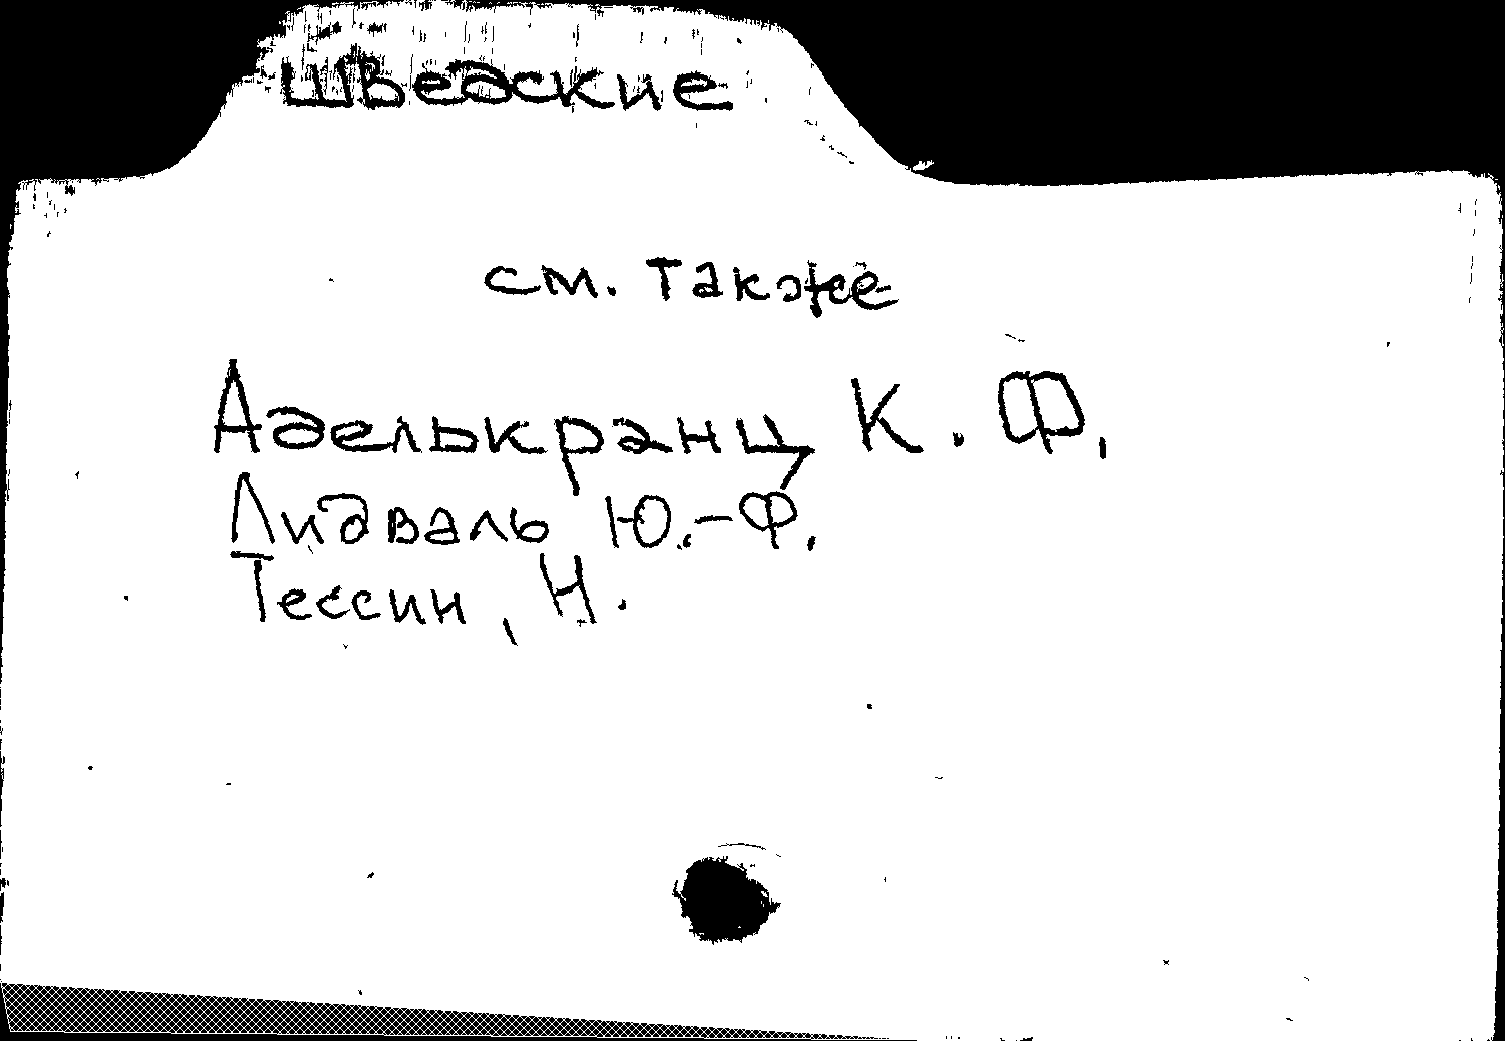 Шведские
см. также
Аделькранц К. Ф.
Лидваль Ю.-Ф.
Тессин, Н.